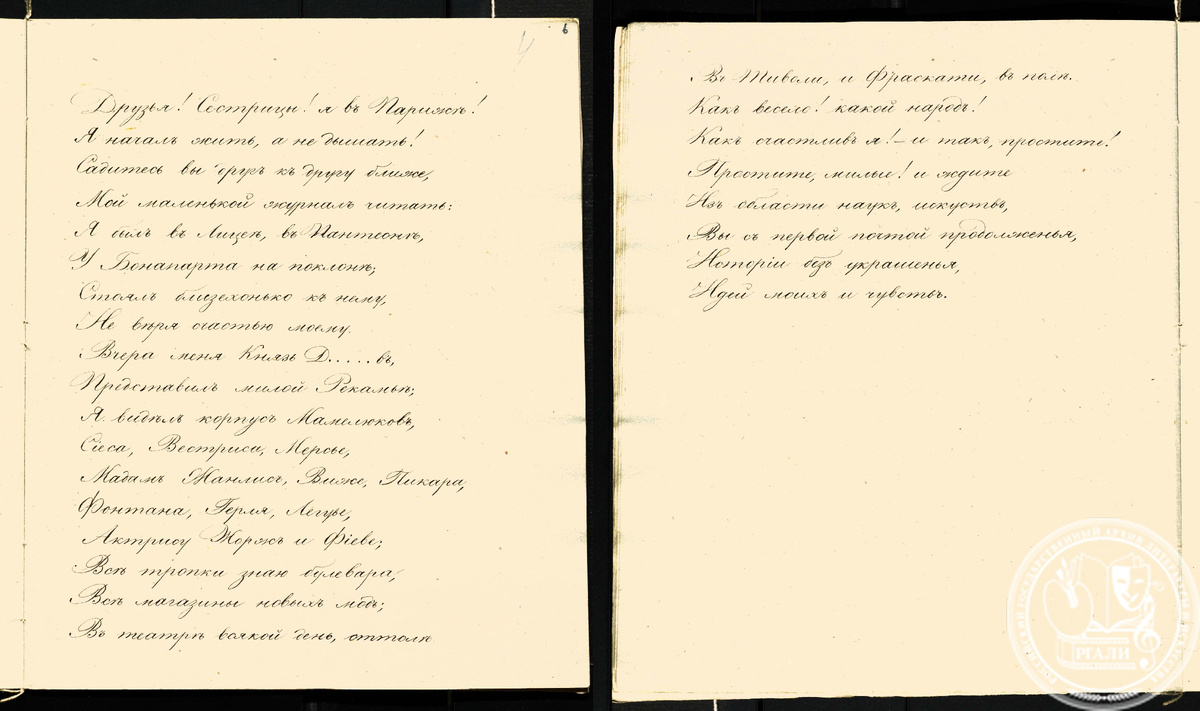 6
Друзья! Сестрицы! я въ Парижѣ!
Я началъ жить, а не дышать!
Садитесь вы другъ къ другу ближе,
Мой маленькой журналъ читать:
Я былъ въ Лицеѣ, въ Пантеонѣ,
У Бонапарта на поклонѣ;
Стоялъ близехонько къ нему,
Не вѣря счастью моему.
Вчера меня Князь Д.....въ,
Представилъ милой Рекамье;
Я видѣлъ корпусъ Мамелюковъ,
Сіеса, Вестриса, Мерсье,
Мадамъ Жанлисъ, Виже, Пикара,
Фонтана, Герля, Легуве,
Актрису Жоржъ и Фіеве;
Всѣ тропки знаю булевара,
Всѣ магазины новыхъ модъ;
Въ театрѣ всякой день, оттолѣ
Въ Тиволи, и Фраскати, въ полѣ.
Какъ весело! какой народъ!
Какъ счастливъ я! – и такъ, простите!
Простите, милые! и ждите
Изъ области наукъ, искуствъ,
Вы съ первой почтой продолженья,
Исторіи безъ украшенья,
Идей моихъ и чувствъ.
РОССИЙСКИЙ ГОСУДАРСТВЕННЫЙ АРХИВ ЛИТЕРАТУРЫ И ИСКУССТВА
РГАЛИ